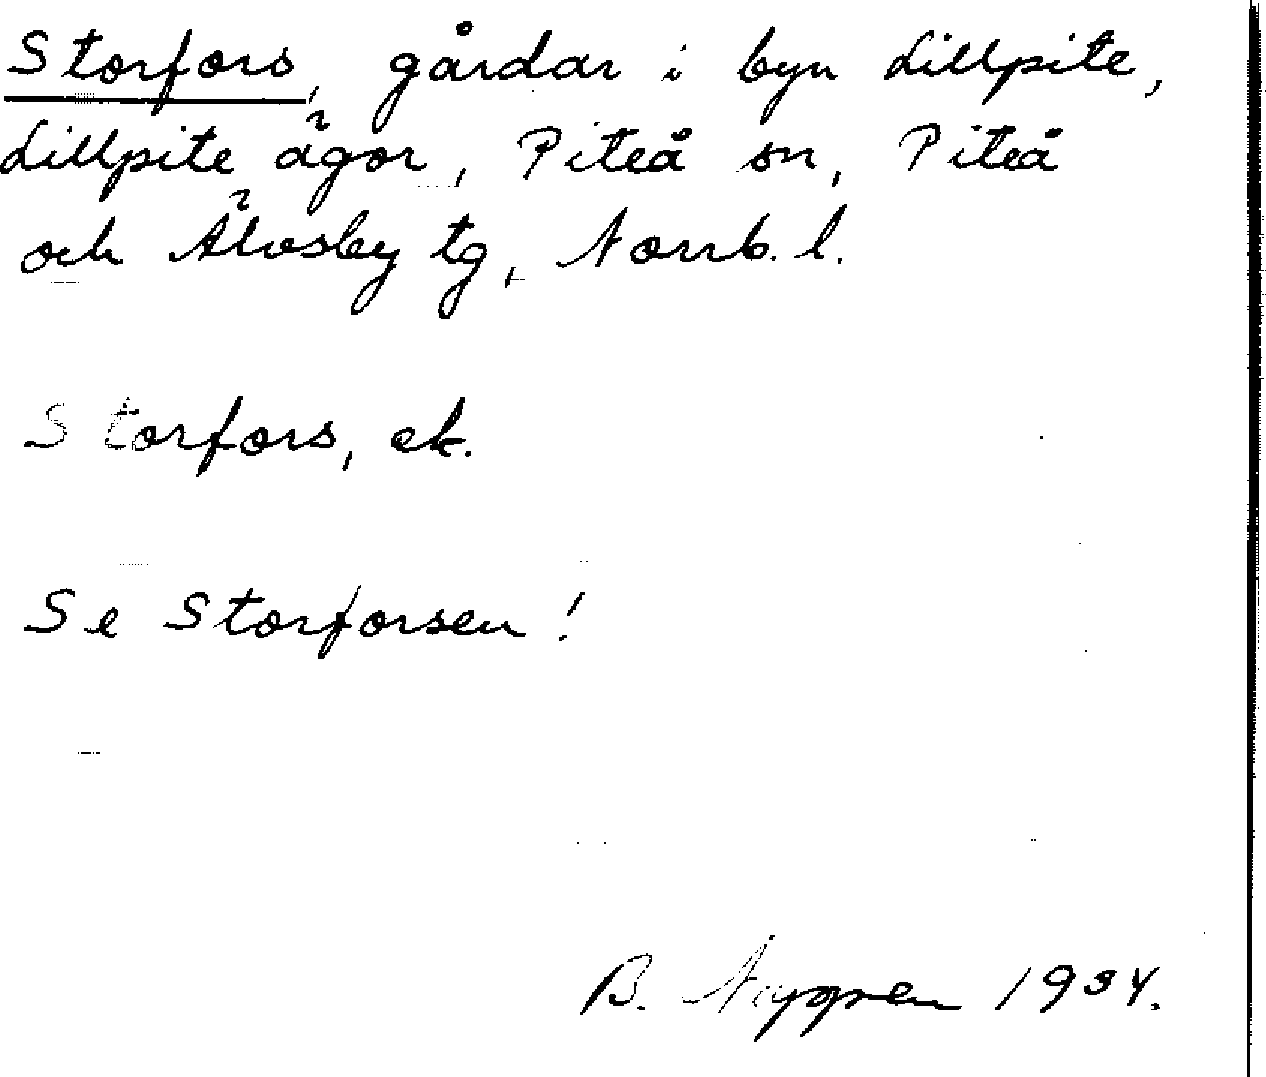 Storfors, gårdar i byn Lillpite,
Lillpite ägor, Piteå sn, Piteå
och Älvsby tg, Norrb. l.
Storfors, ek.
Se Storforsen!
B. Nygren 1934.